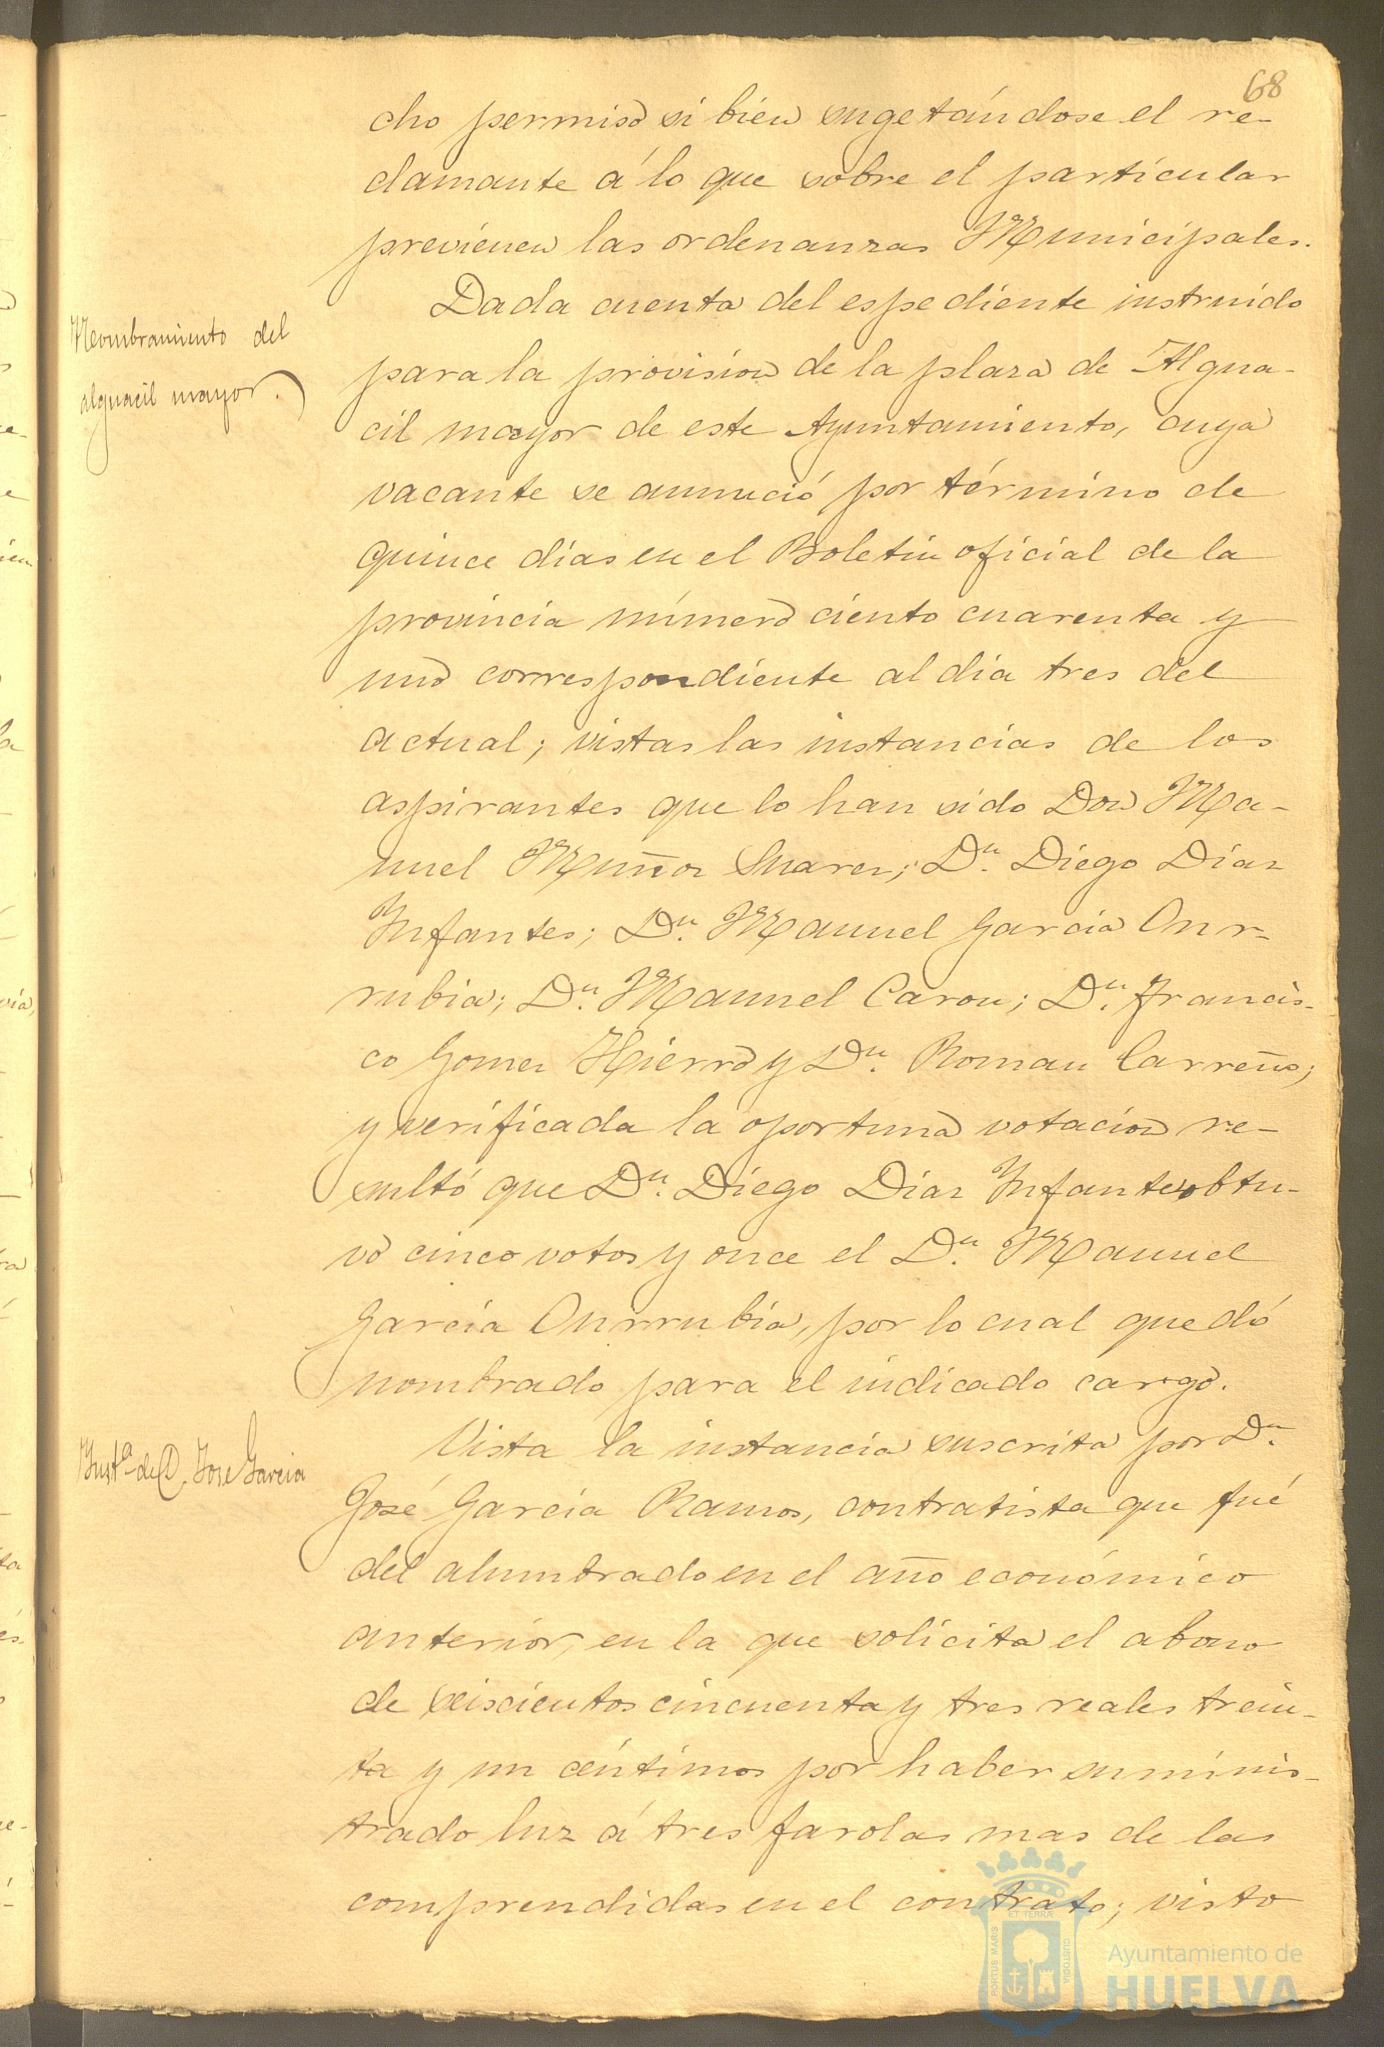 68
cho permiso si bien sugetándose el re-
clamante á lo que sobre el particular
previenen las ordenanzas Municipales.
Nombramiento del
alguacil mayor.
Dada cuenta del espediente instruido
para la provision de la plaza de Algua-
cil mayor de este Ayuntamiento, cuya
vacante se anunció por término de
quince dias en el Boletin oficial de la
provincia número ciento cuarenta y
uno correspondiente al dia tres del
actual; vistas las instancias de los
aspirantes que lo han sido Don Ma-
nuel Muñoz Suarez; Dn. Diego Diaz
Infantes; Dn. Manuel Garcia Onr-
rubia; Dn. Manuel Caron; Dn. Francis-
co Gomez Hierro y Dn. Roman Carreño;
y verificada la oportuna votacion re-
sultó que Dn. Diego Diaz Infantes obtu-
vo cinco votos y once el Dn. Manuel
Garcia Onrrubia, por lo cual quedó
nombrado para el indicado cargo.
Insta. de D. Jose Garcia
Vista la instancia suscrita por Dn.
José Garcia Ramos, contratista que fué
del alumbrado en el año económico
anterior, en la que solicita el abono
de seiscientos cincuenta y tres reales trein-
ta y un céntimos por haber suminis-
trado luz á tres farolas mas de las
comprendidas en el contrato; visto
PORTUS MARIS
ET TERRÆ
CUSTODIA
Ayuntamiento de
HUELVA